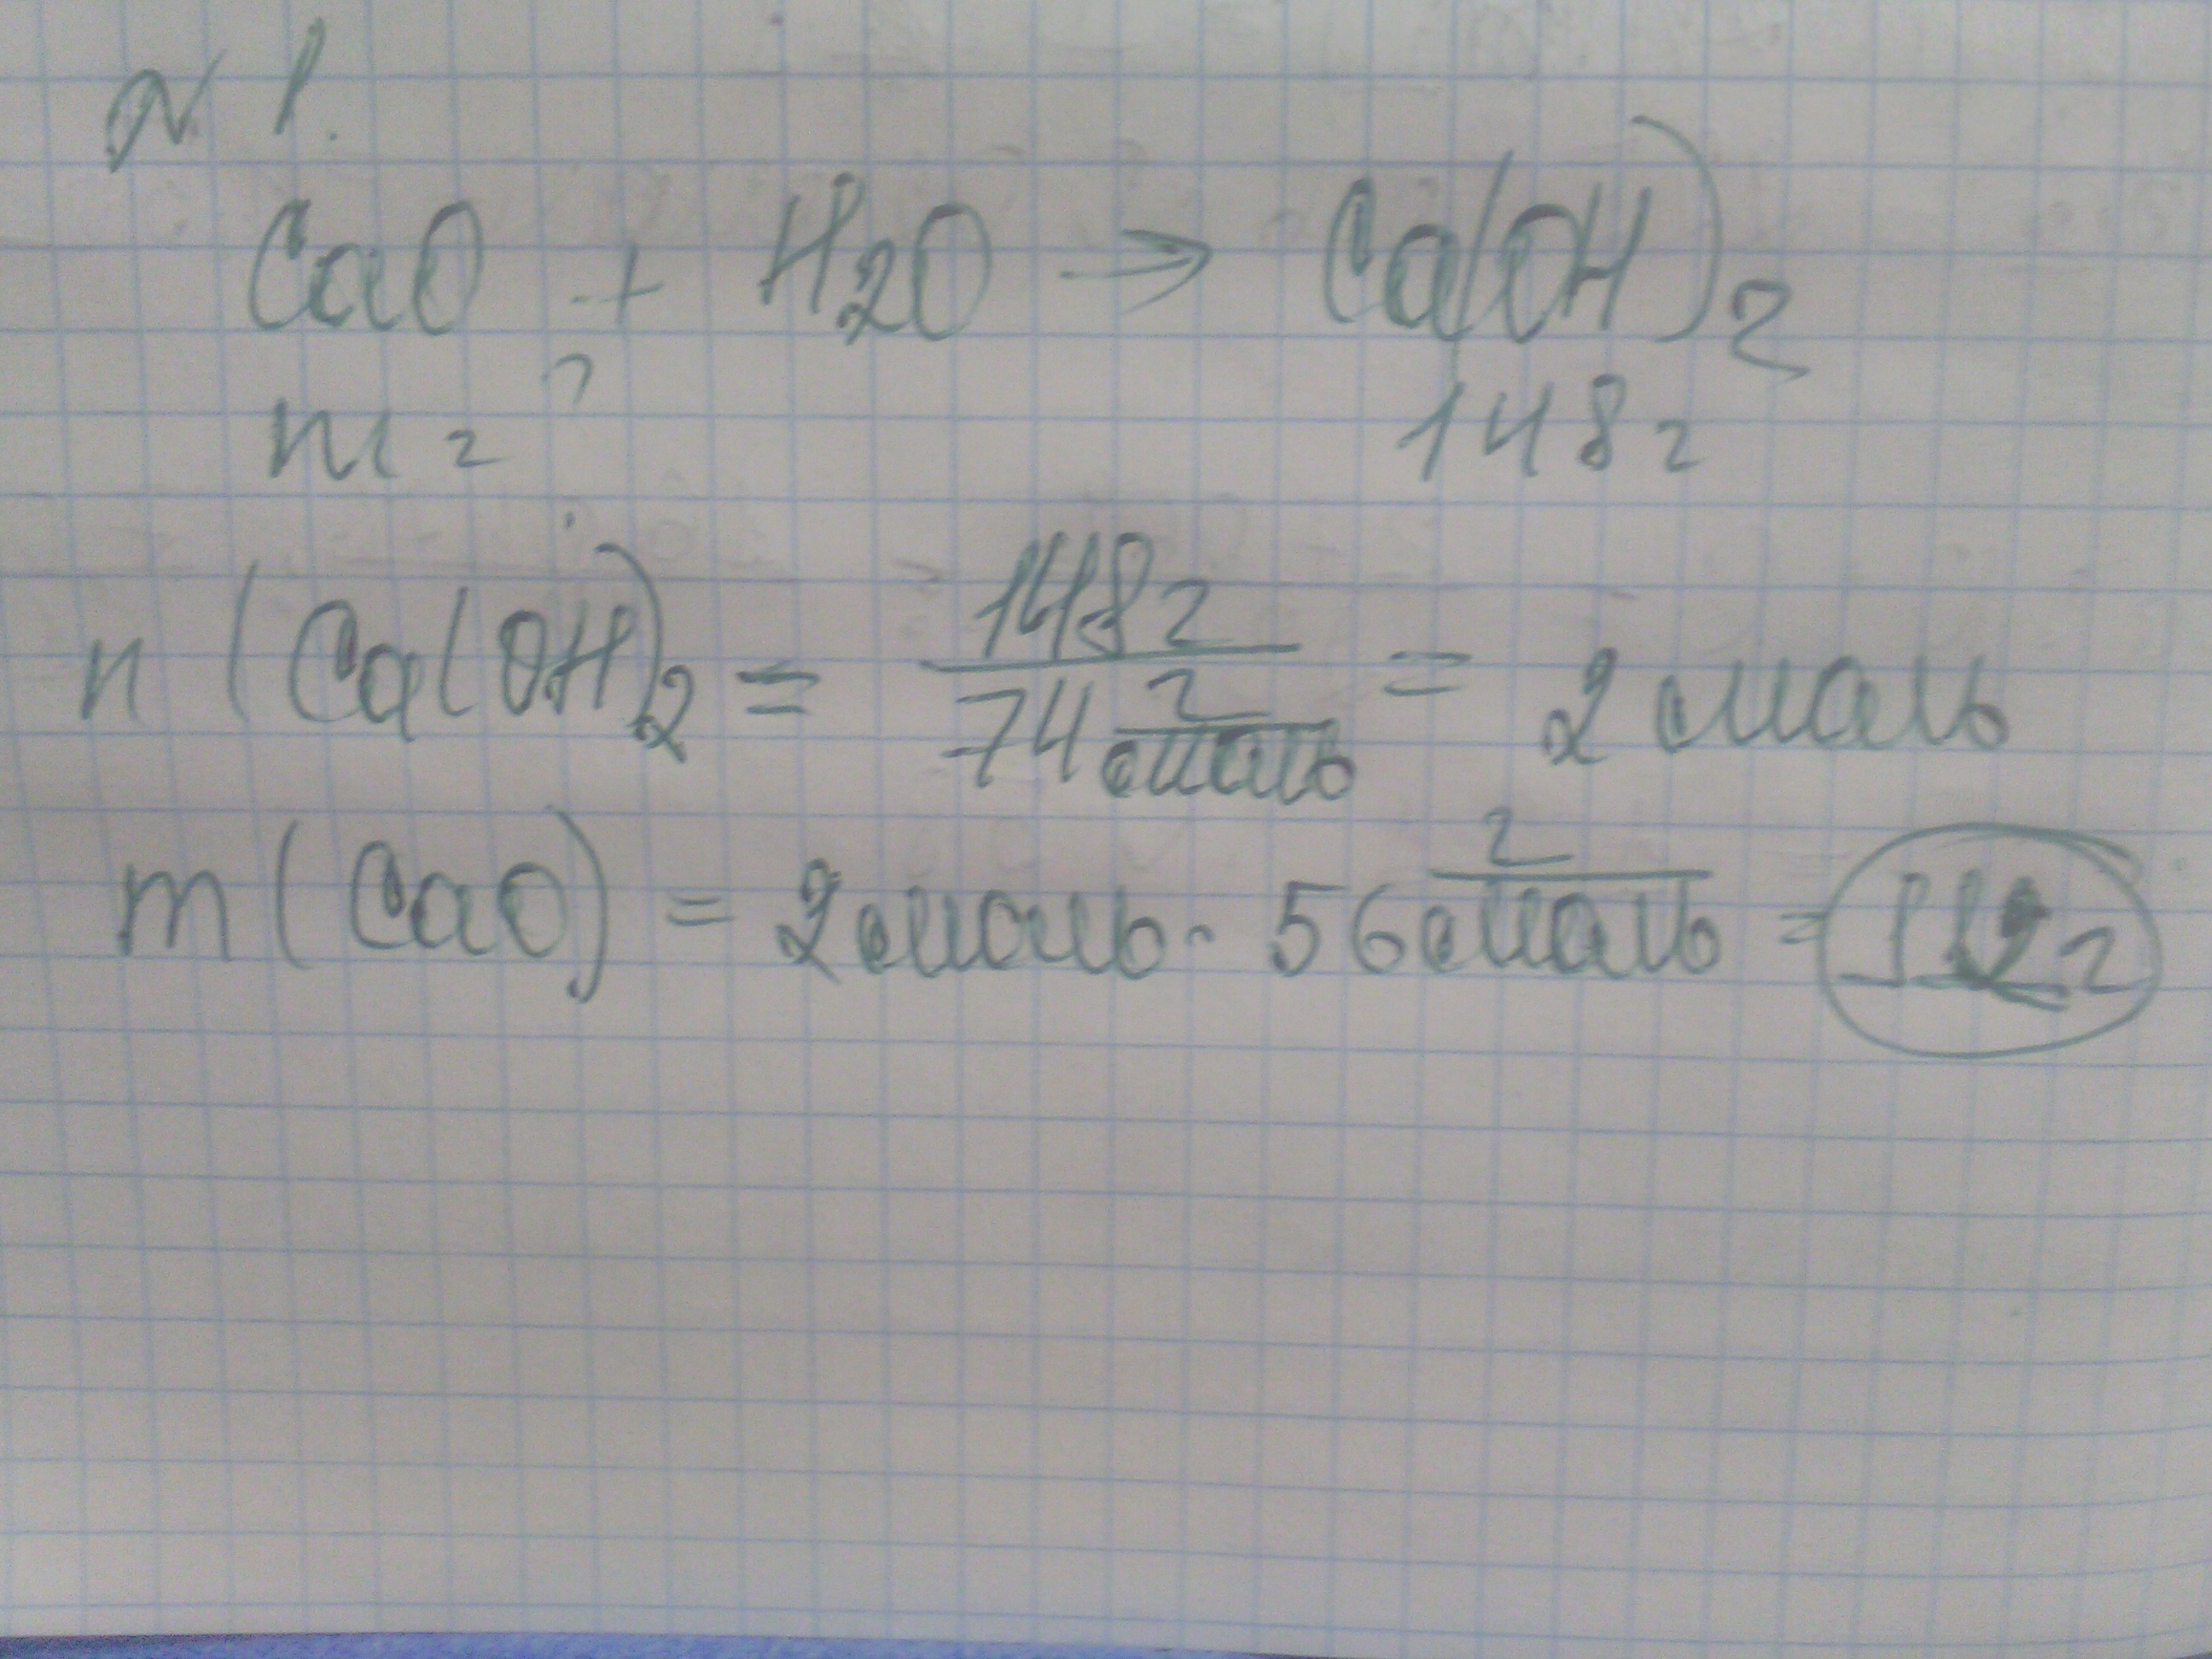 N 1.
CaO + H2O → Ca(OH)2
m г ? 148 г
n (Ca(OH)2 = 148 г / 74 г/моль = 2 моль
m (CaO) = 2 моль · 56 г/моль = 112 г